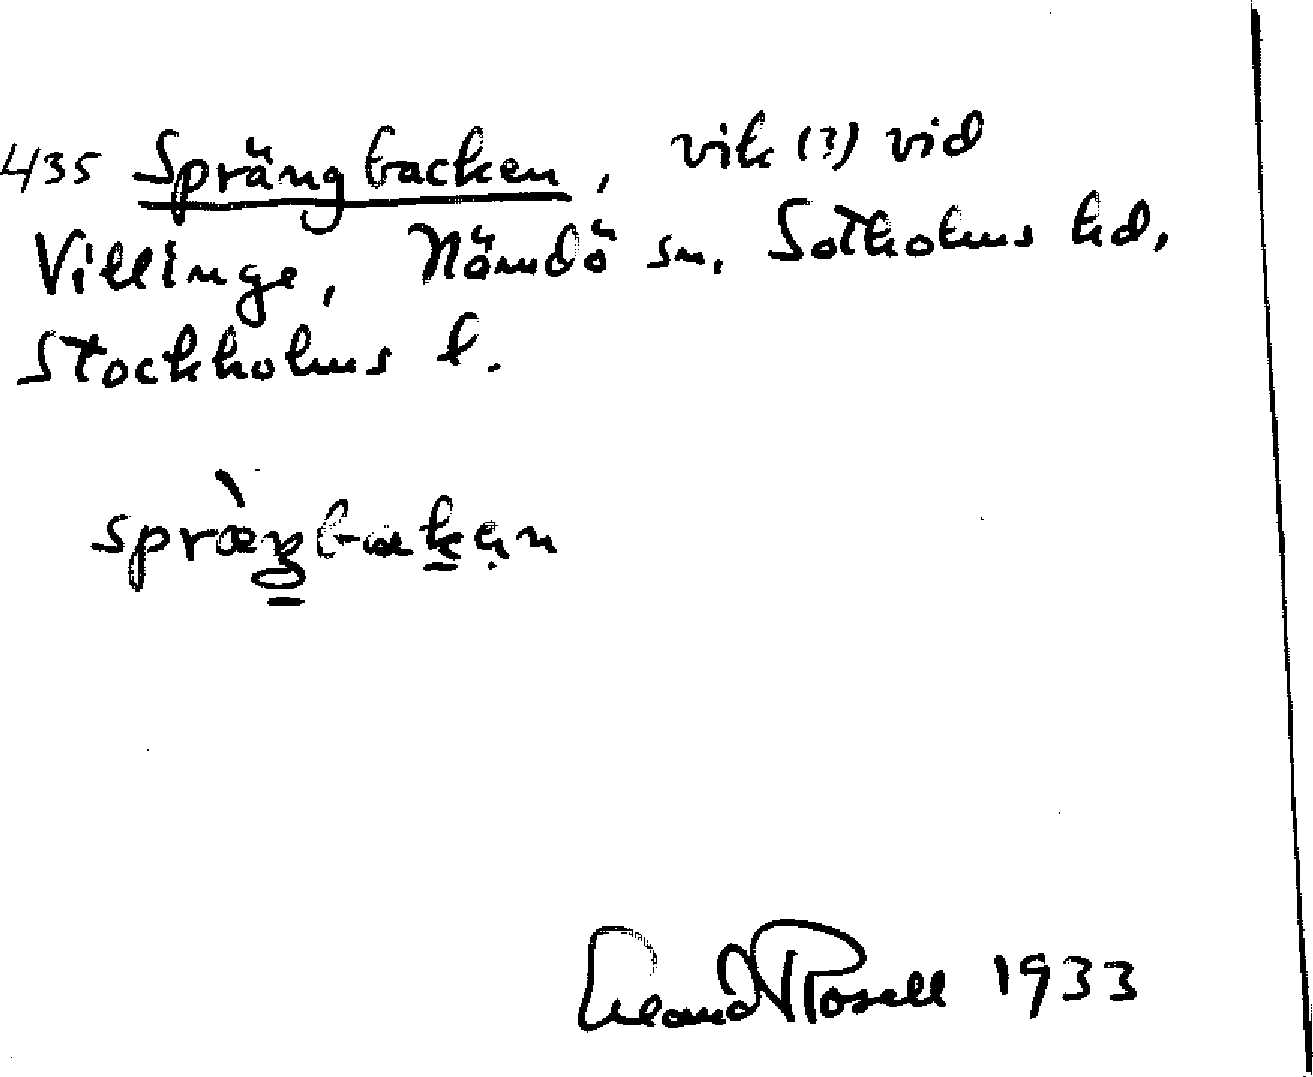 435 Sprängbacken, vik (?) vid
Villinge, Nämdö sn. Sotholms hd,
Stockholms l.
Erland Rosell 1933